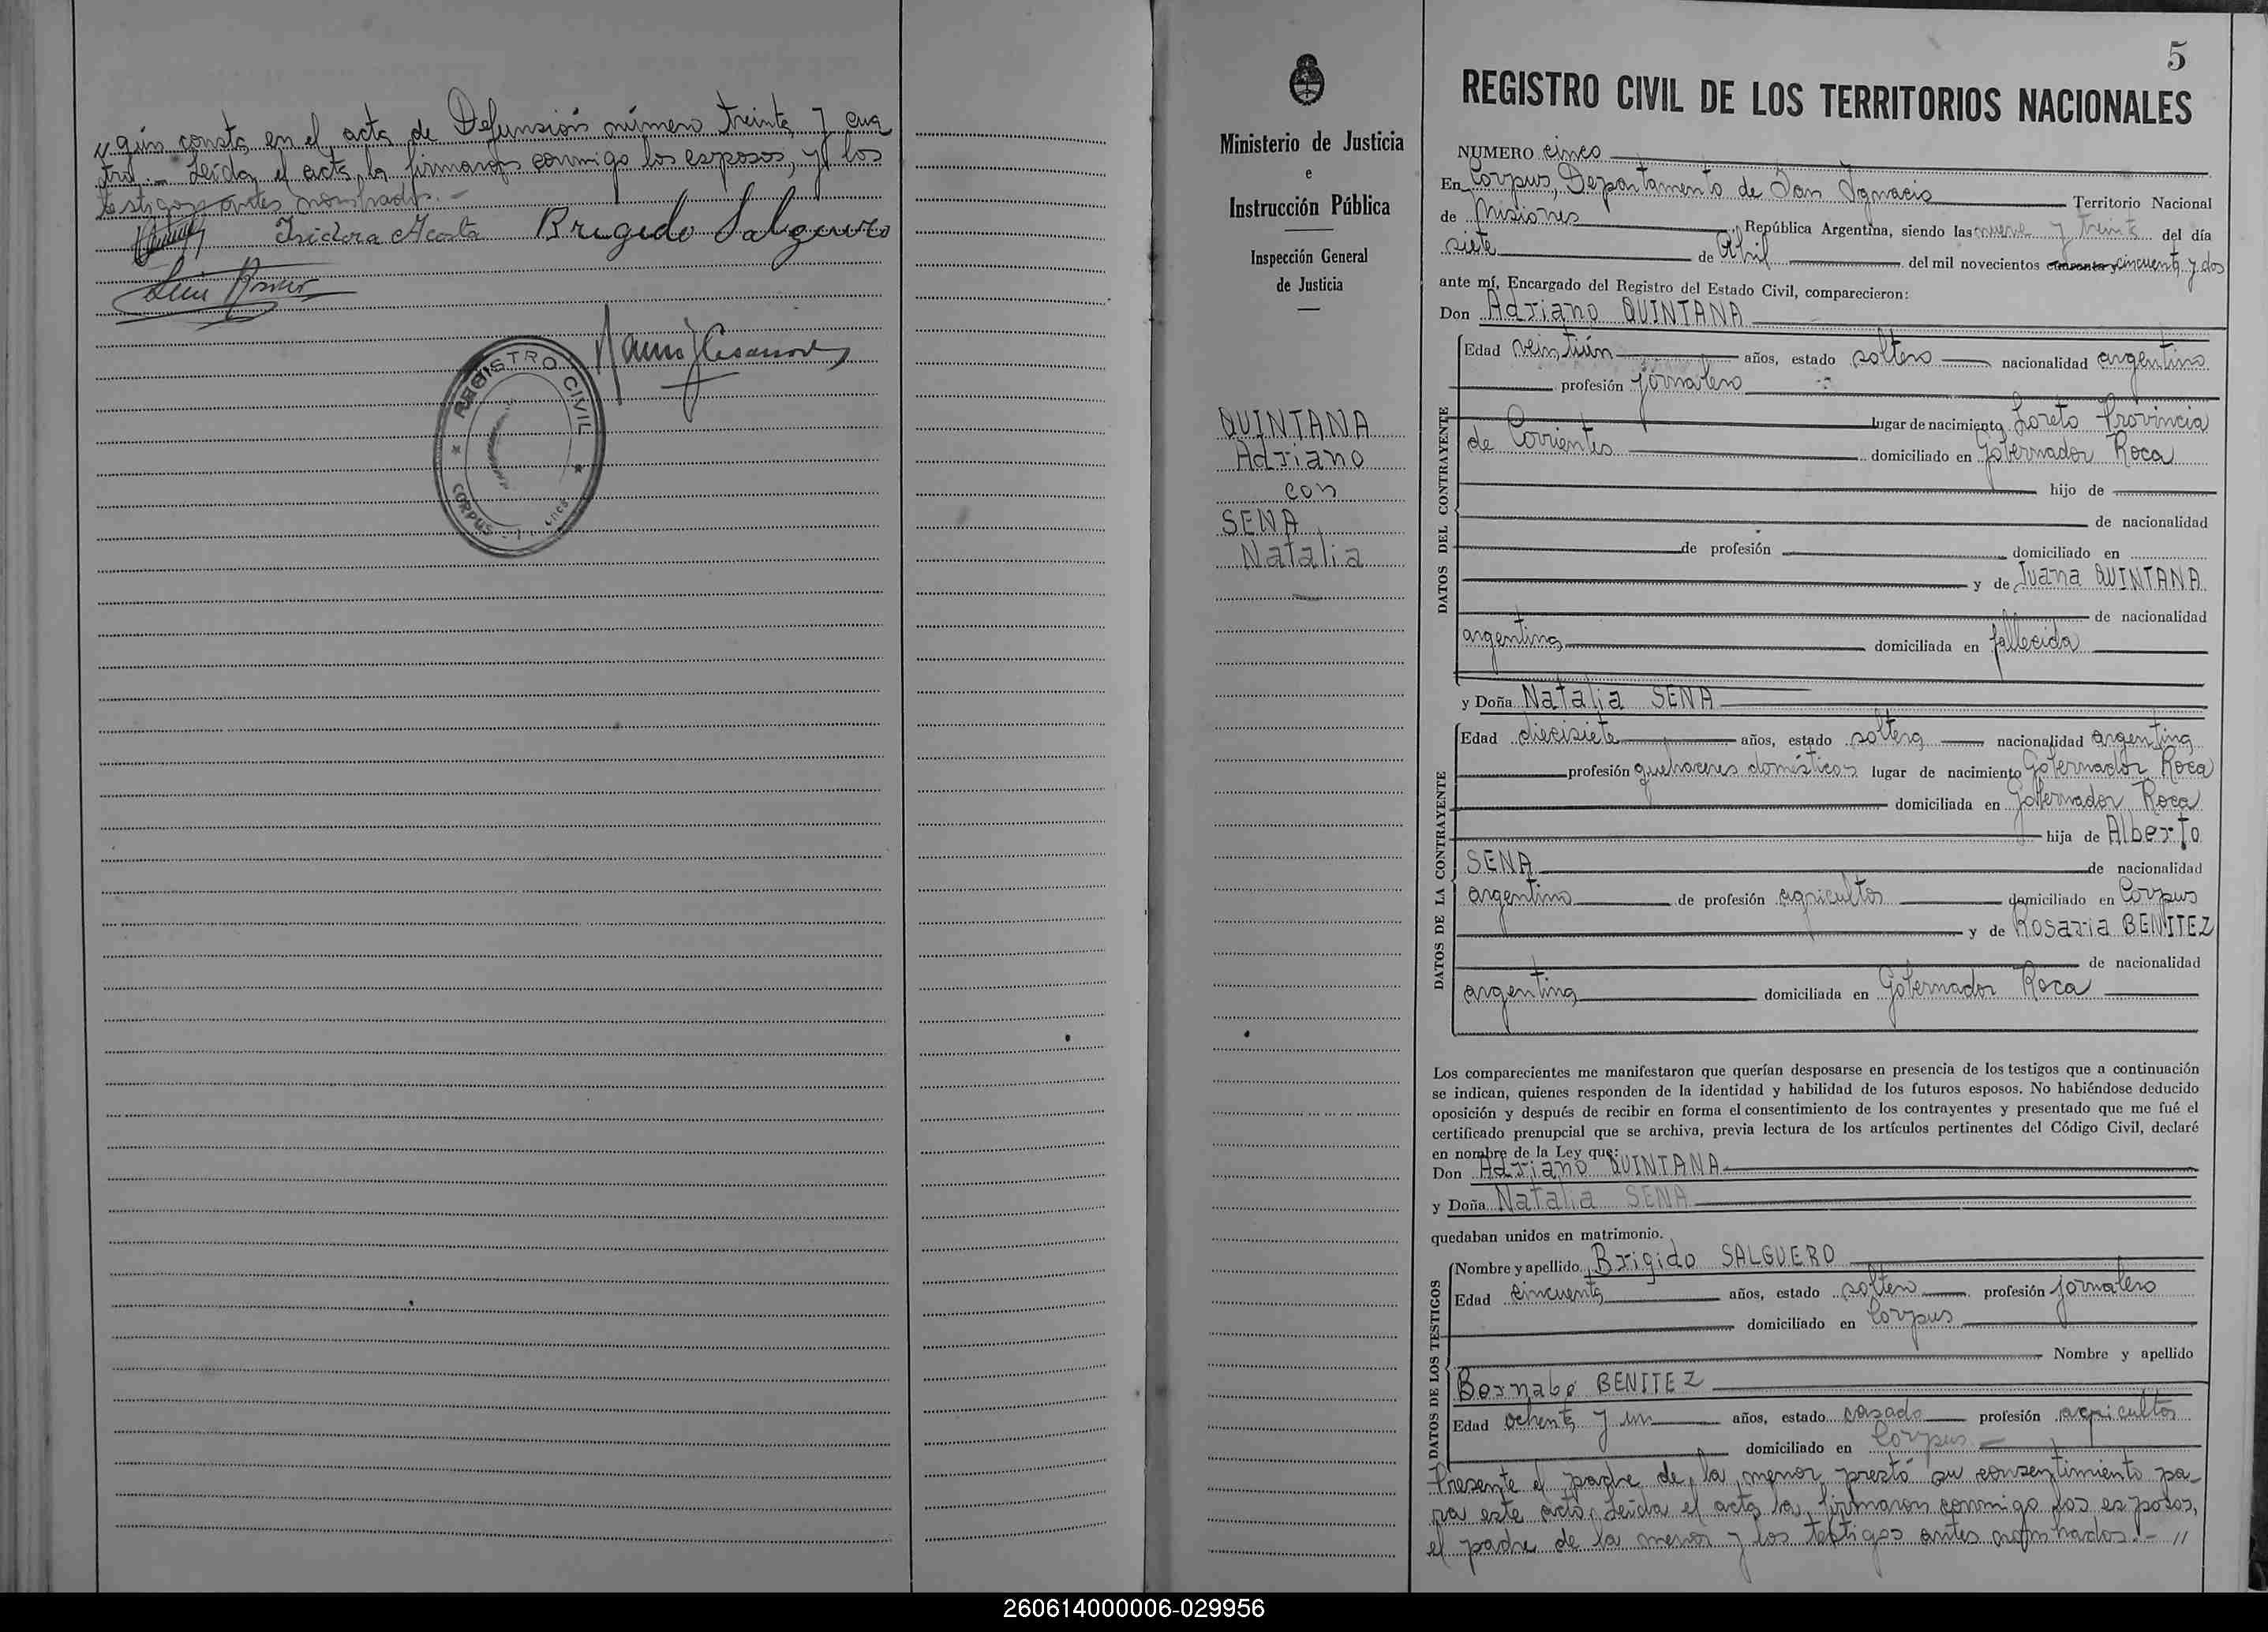 "gún consta en el acta de Defunsión número treinta y cua
tro.- Leída el acta la firmaron conmigo los esposos, y los
testigos antes nombrados.-
Isidora Acosta Brigido Salguero
REGISTRO CIVIL
CORPUS
5
Ministerio de Justicia
e
Instrucción Pública
Inspección General
de Justicia
QUINTANA
Adriano
con
SENA
Natalia
REGISTRO CIVIL DE LOS TERRITORIOS NACIONALES
NUMERO cinco
En Corpus, Departamento de San Ignacio Territorio Nacional
de Misiones, República Argentina, siendo las nueve y treinta del día
siete de Abril del mil novecientos cuarenta y cincuenta y dos
ante mí, Encargado del Registro del Estado Civil, comparecieron:
Don Adriano QUINTANA
DATOS DEL CONTRAYENTE
Edad veintiún años, estado soltero nacionalidad argentino
profesión jornalero
lugar de nacimiento Loreto Provincia
de Corrientes domiciliado en Gobernador Roca
hijo de
de nacionalidad
de profesión domiciliado en
y de Juana QUINTANA
de nacionalidad
argentina domiciliada en fallecida
y Doña Natalia SENA
DATOS DE LA CONTRAYENTE
Edad diecisiete años, estado soltera nacionalidad argentina
profesión quehaceres domésticos lugar de nacimiento Gobernador Roca
domiciliada en Gobernador Roca
hija de Alberto
SENA de nacionalidad
argentino de profesión agricultor domiciliado en Corpus
y de Rosaria BENITEZ
de nacionalidad
argentina domiciliada en Gobernador Roca
Los comparecientes me manifestaron que querían desposarse en presencia de los testigos que a continuación
se indican, quienes responden de la identidad y habilidad de los futuros esposos. No habiéndose deducido
oposición y después de recibir en forma el consentimiento de los contrayentes y presentado que me fué el
certificado prenupcial que se archiva, previa lectura de los artículos pertinentes del Código Civil, declaré
en nombre de la Ley que:
Don Adriano QUINTANA
y Doña Natalia SENA
quedaban unidos en matrimonio.
DATOS DE LOS TESTIGOS
Nombre y apellido Brigido SALGUERO
Edad cincuenta años, estado soltero profesión jornalero
domiciliado en Corpus
Nombre y apellido
Bernabé BENITEZ
Edad ochenta y un años, estado casado profesión agricultor
domiciliado en Corpus
Presente el padre de la menor prestó su consentimiento pa-
ra este acto, Leída el acta la firmaron conmigo los esposos,
el padre de la menor y los testigos antes nombrados.- "
260614000006-029956